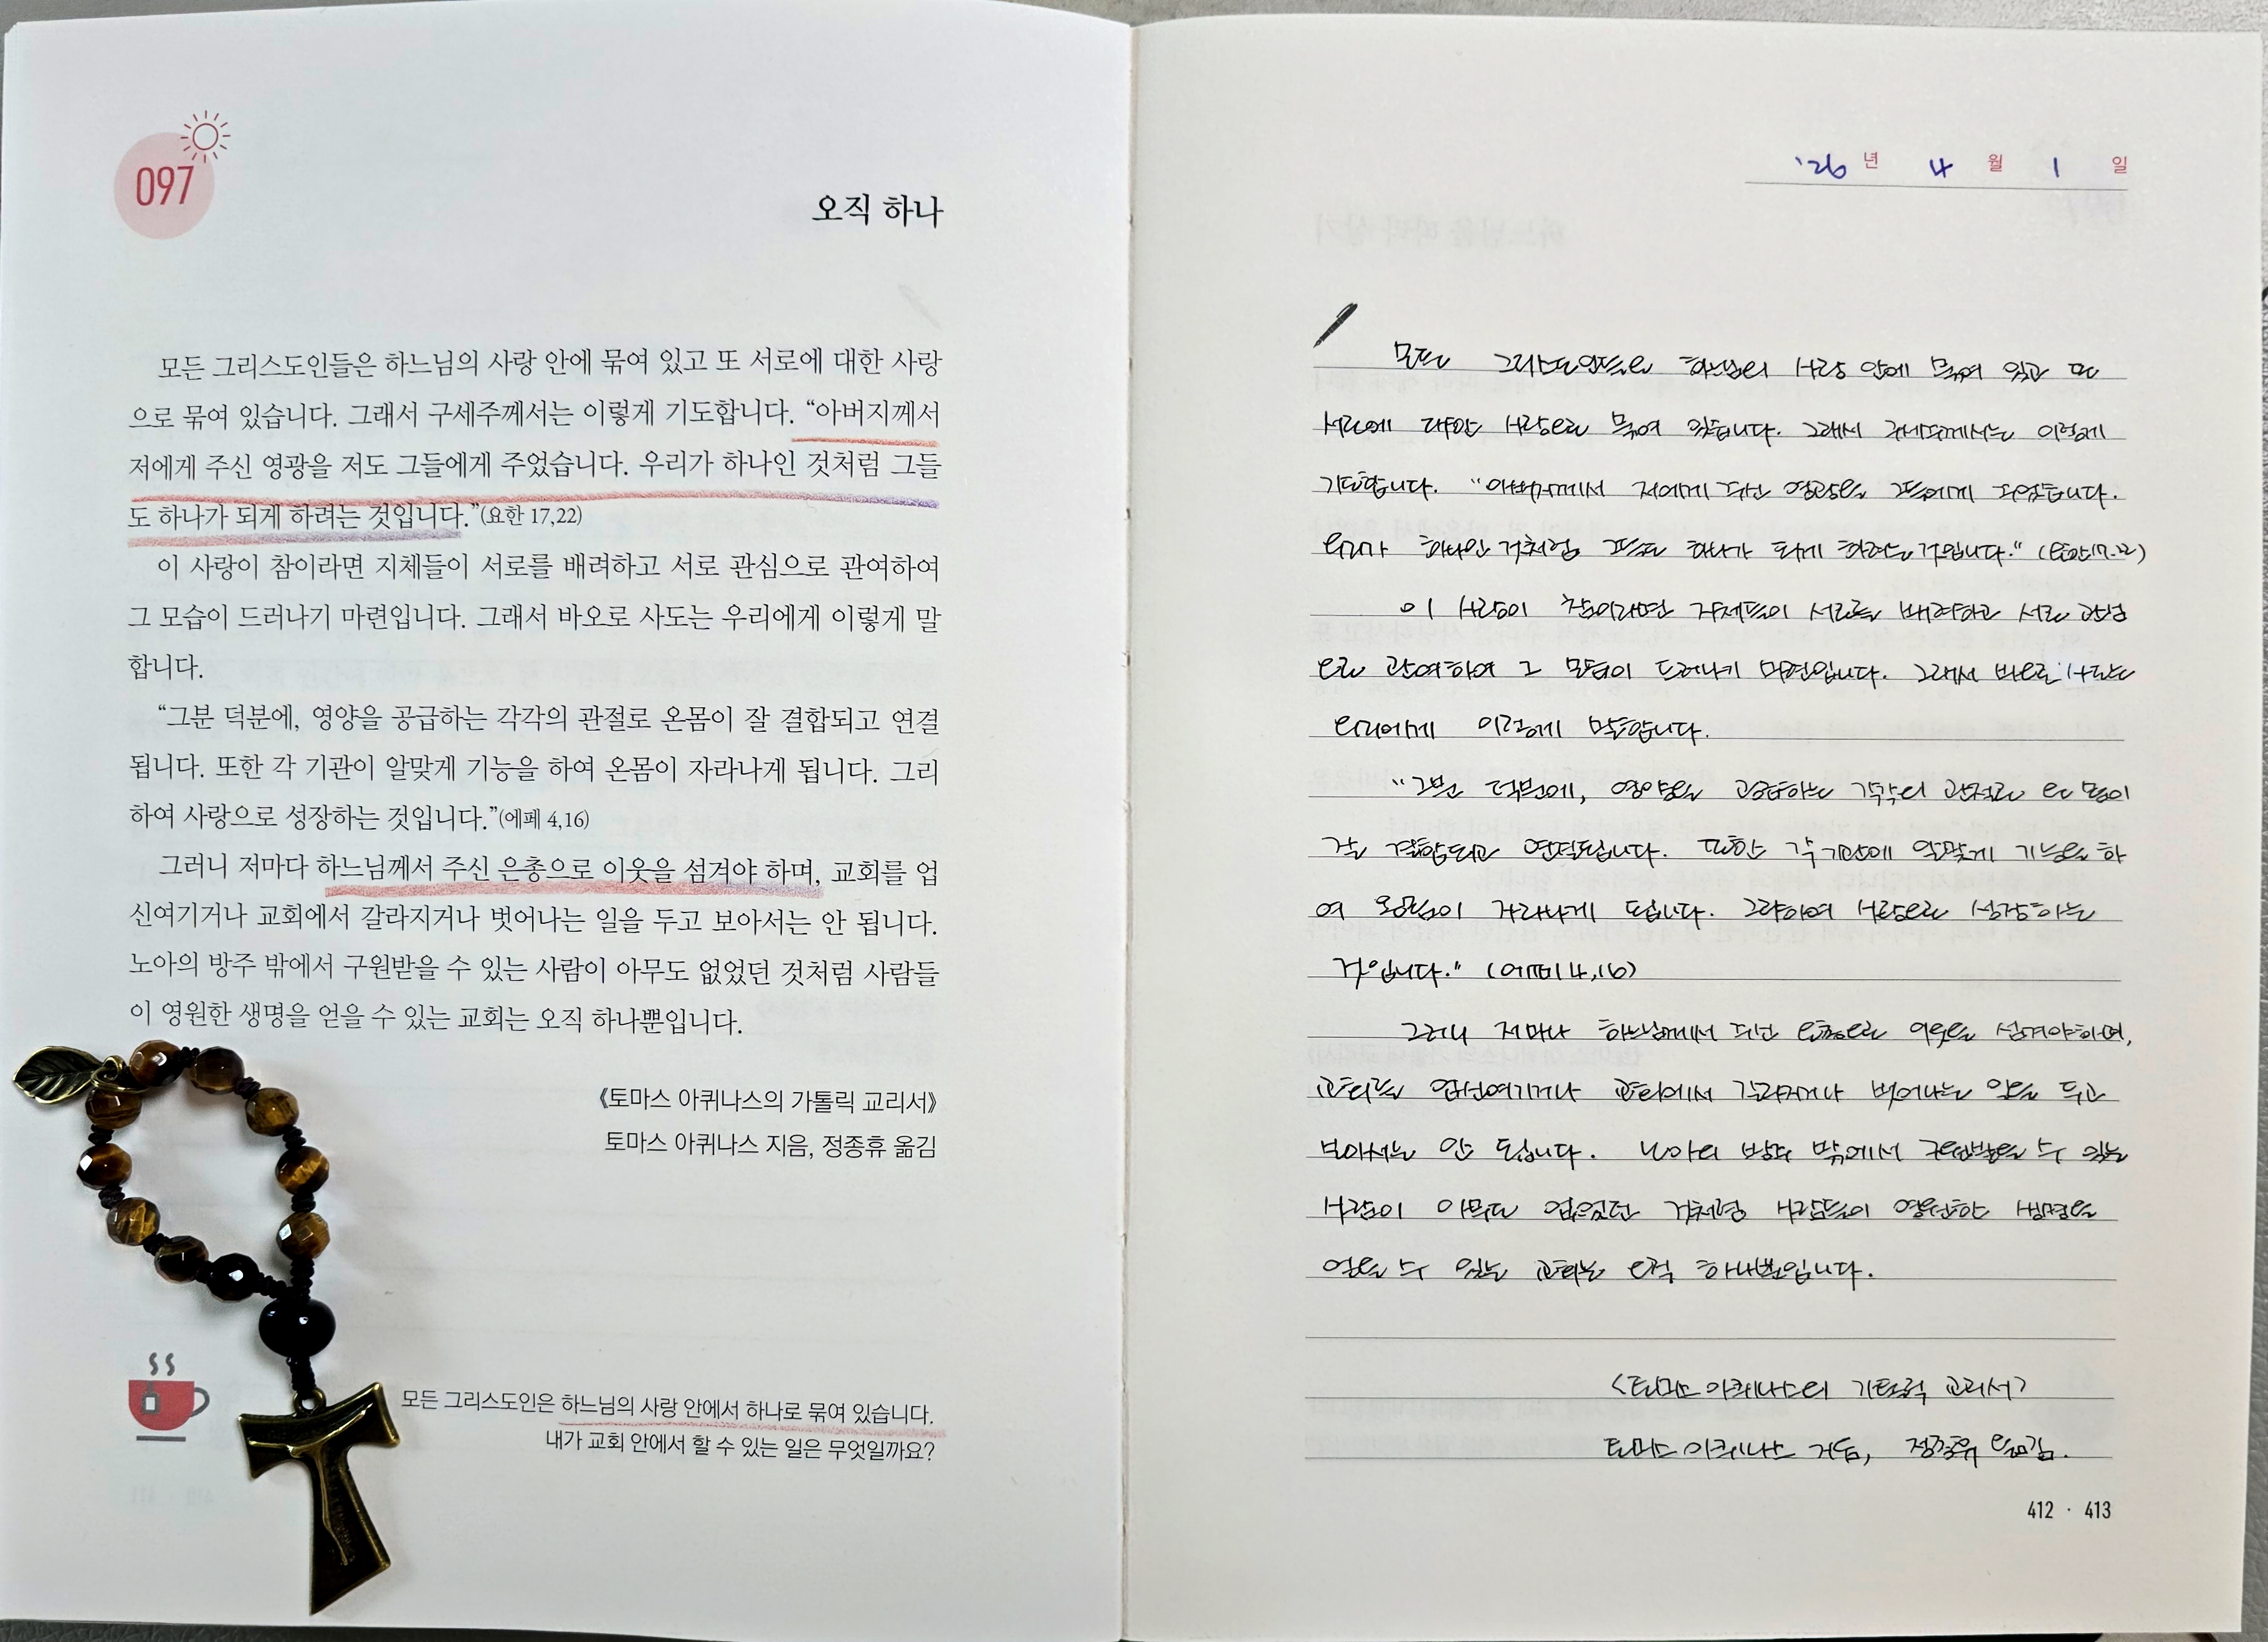 097
오직 하나
모든 그리스도인들은 하느님의 사랑 안에 묶여 있고 또 서로에 대한 사랑
으로 묶여 있습니다. 그래서 구세주께서는 이렇게 기도합니다. “아버지께서
저에게 주신 영광을 저도 그들에게 주었습니다. 우리가 하나인 것처럼 그들
도 하나가 되게 하려는 것입니다.”(요한 17,22)
이 사랑이 참이라면 지체들이 서로를 배려하고 서로 관심으로 관여하여
그 모습이 드러나기 마련입니다. 그래서 바오로 사도는 우리에게 이렇게 말
합니다.
“그분 덕분에, 영양을 공급하는 각각의 관절로 온몸이 잘 결합되고 연결
됩니다. 또한 각 기관이 알맞게 기능을 하여 온몸이 자라나게 됩니다. 그리
하여 사랑으로 성장하는 것입니다.”(에페 4,16)
그러니 저마다 하느님께서 주신 은총으로 이웃을 섬겨야 하며, 교회를 업
신여기거나 교회에서 갈라지거나 벗어나는 일을 두고 보아서는 안 됩니다.
노아의 방주 밖에서 구원받을 수 있는 사람이 아무도 없었던 것처럼 사람들
이 영원한 생명을 얻을 수 있는 교회는 오직 하나뿐입니다.
《토마스 아퀴나스의 가톨릭 교리서》
토마스 아퀴나스 지음, 정종휴 옮김
모든 그리스도인은 하느님의 사랑 안에서 하나로 묶여 있습니다.
내가 교회 안에서 할 수 있는 일은 무엇일까요?
'26 년 4 월 1 일
모든 그리스도인들은 하느님의 사랑 안에 묶여 있고 또
서로에 대한 사랑으로 묶여 있습니다. 그래서 구세주께서는 이렇게
기도합니다. “아버지께서 저에게 주신 영광을 그들에게 주었습니다.
우리가 하나인 것처럼 그들도 하나가 되게 하려는 것입니다.” (요한17.22)
이 사랑이 참이라면 지체들이 서로를 배려하고 서로 관심
으로 관여하여 그 모습이 드러나기 마련입니다. 그래서 바오로 사도는
우리에게 이렇게 말합니다.
“그분 덕분에, 영양을 공급하는 각각의 관절로 온 몸이
잘 결합되고 연결됩니다. 또한 각 기관에 알맞게 기능을 하
여 온몸이 자라나게 됩니다. 그리하여 사랑으로 성장하는
것입니다.” (에페 4,16)
그러니 저마다 하느님께서 주신 은총으로 이웃을 섬겨야하며,
교회를 업신여기거나 교회에서 갈라지거나 벗어나는 일을 두고
보아서는 안 됩니다. 노아의 방주 밖에서 구원받을 수 있는
사람이 아무도 없었던 것처럼 사람들이 영원한 생명을
얻을 수 있는 교회는 오직 하나뿐입니다.
<토마스 아퀴나스의 가톨릭 교리서>
토마스 아퀴나스 지음, 정종휴 옮김.
412 · 413